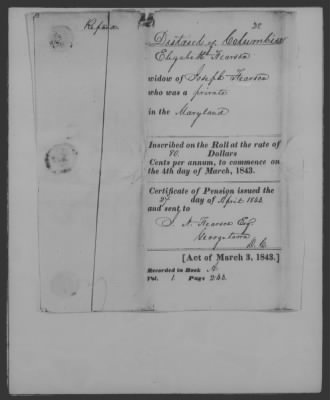 Repaid
District of Columbia
Elizabeth Fearson
widow of Joseph Fearson
who was a private
in the Maryland
Inscribed on the Roll at the rate of
80 Dollars
Cents per annum, to commence on
the 4th day of March, 1843.
Certificate of Pension issued the
27 day of April
and sent to
Fearson Esq
Georgetown
D. C.
[Act of March 3, 1843.]
Recorded in Book A
Vol. 1. Page